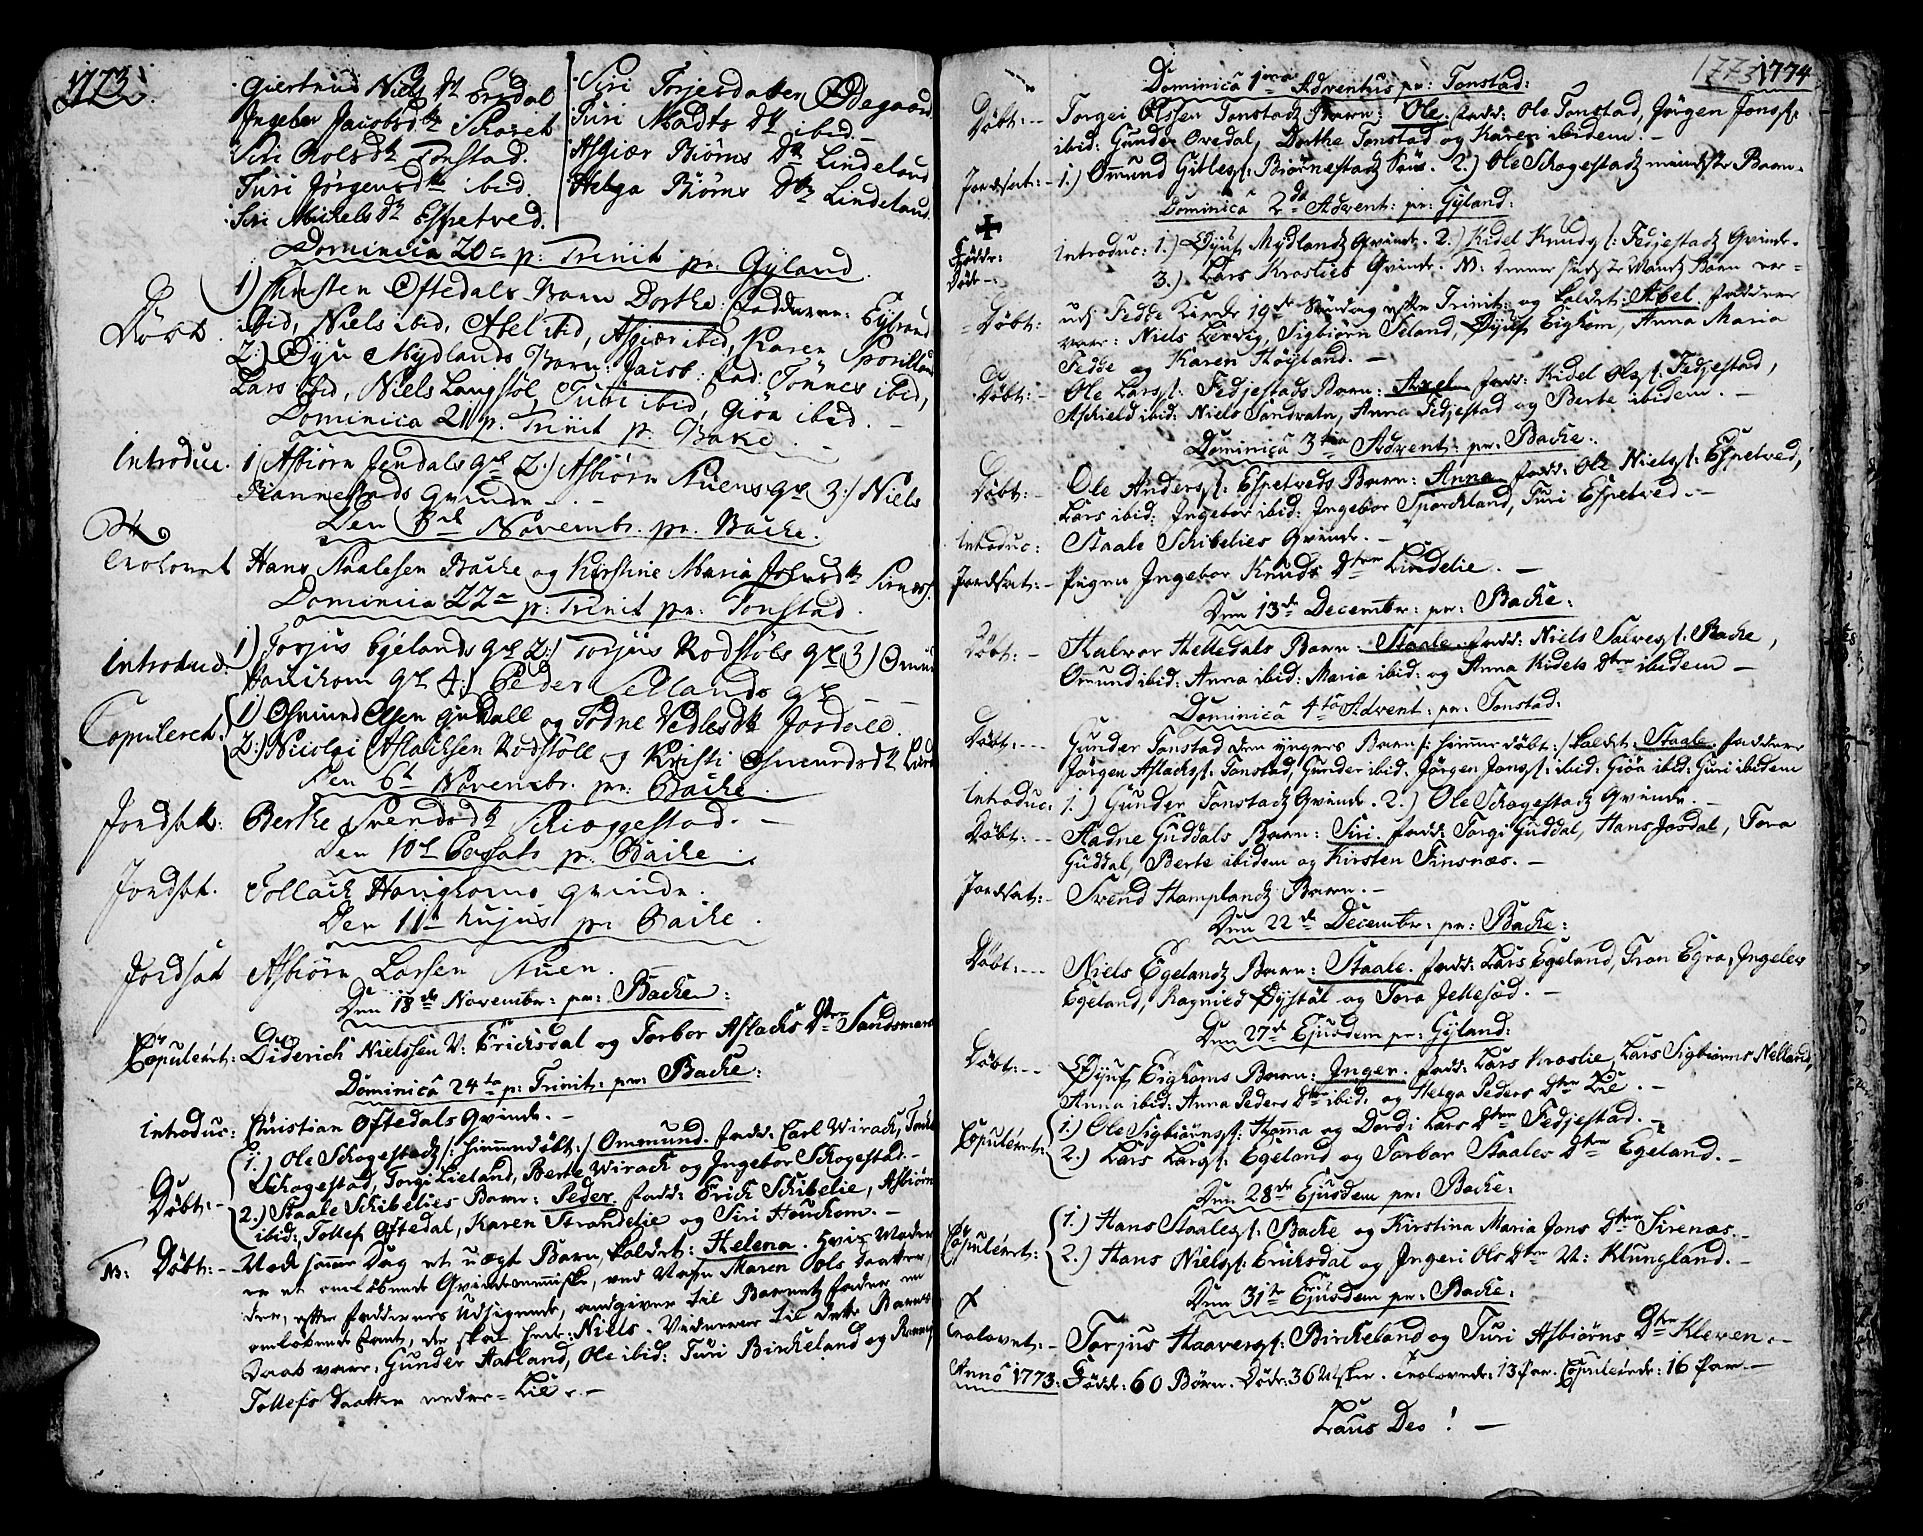 1773.
Giertrud Niels Dt Ersdal
Ingebor Jacobsdtr Schoret
Siri Olsdt Tonstad.
Turi Jørgensdtr ibid.
Siri Michelsdt Espetved.
Siri Torjesdatter Ødegaard
Turi Madts Dt ibid. -
Asgiær Biørns Dtr Lindeland
Helga Biørns Dtr Lindeland.
Dominica 20de p: Trinit pr: Gyland.
Døbt. 1) Christen Oftedals Barn Dorthe: Faddere: Eyvind
ibid, Niels ibid, Abel ibid, Asgiær ibid, Karen
2.) Øyu Mydlands Barn: Jacob: fad: Tønnes ibid,
Lars ibid, Niels Langstøl, Turi ibid, Giøa ibid. -
Dominica 21 p. Trinit p. Bake.
Introduc. 1) Asbiørn Jendals qv. 2.) Asbiørn Stuens qv. 3.) Niels
Biønnestads qvinde. -
Den 3de Novembr. pr. Backe.
Trolovet Hans Staalesen Backe og Kirstine Maria Jonsdtr Sirenes.
Dominica 22de p: Trinit pr: Tonstad.
Introduc: 1) Torjus Egelands qv. 2.) Torjus Rodstøls qv. 3) Omund
Haughom qv. 4.) Peder Sellands qv. -
Copuleret. 1) Osmund Olsen Guddall og Todne Vedlesdt Josdall.
2.) Nicolai Aslachsen Rodstøll og Kristi Osmundsdt
Den 6te Novembr. pr. Backe.
Jordsat: Berthe Svendsdtr Schiæggestad. -
Den 10de Ejusd. p. Backe.
Jordsat. Tollach Haughoms qvinde.
Den 11te hujus pr Backe.
Jordsat Asbiørn Larsen Stuen.
Den 18de Novembr: pr: Backe:
Copuleret: Diderich Nielssen V: Ericksdal og Torbor Aslachs Dter Sandsmark
Dominica 24ta p: Trinit: pr: Backe:
Introduc: Christian Oftedals Qvinde. -
Døbt: - 1.) Ole Schogestadz /: hiemmedøbt: / Ommund. fadd: Carl Wirack,
Schogestad, Torgi Lieland, Berte Wirack og Ingebor Schogestad. -
2.) Staale Schibelies Barn: Peder. fadd: Erick Schibelie, Asbiørn
ibid:, Tollef Oftedal, Karen Strandelie og Siri Houkom. -
NB: Døbt: - Med samme Dag et uægt Barn, kaldet: Helena. hvis Moder
er et omløbende Qvindemenniske, ved Navn Maren Ools Daatter,
der, efter faddernes Udsigende, angiver til Barnetz fader en
omløbende Tant, der skal hede: Niels. Vidnerne til dette Barns
Daab vaer: Gunder Aatland, Ole ibid: Turi Birckeland og
Tollefs Daatter nedre-Lie. -
1773 1774
Dominica 1ma Adventus pr: Tonstad:
Døbt: - Torgei Olssen Tonstadz Barn: Ole. fadd: Ole Tonstad, Jørgen Jonss:
ibid: Gunder Ovedal, Dorthe Tonstad og Karen ibidem. -
Jordsat: - 1.) Omund Gitless: Biørnestadz 2.) Ole Schogestadz mindste Barn.
Dominica 2da Advent: pr: Gyland:
Fødde:
Døde -:
Introduc: 1.) Øjuf Mydlandz Qvinde. 2.) Kidel Knudss: Fedjestadz Qvinde.
3.) Lars Kroslies Qvinde. NB: denne sidste Mandz Barn var
Døbt: udj Fedde Kircke 19de Søndag efter Trinit: og kaldet: Abel. faddere
vaer: Niels Lervig, Sigbiørn Seland, Øjuf Eighom, Anna Maria
Fedde og Karen Høyland. -
Døbt: - Ole Larss: Fedjestads Barn: Axel. fadd: Kidel Olss: Fedjestad,
Aschield ibid: Niels Sandvatn, Anna Fedjestad og Berte ibidem. -
Dominica 3tia Advent: pr: Backe:
Døbt: - Ole Anderss: Espetveds Barn: Anna. fadd: Ole Nielss: Espetved,
Lars ibid: Ingebor ibid: Ingebor Sporckland, Turi Espetved. -
Introduc: Staale Schibelies Qvinde. -
Jordsat: - Pigen Ingebor Knuds Dter Lindelie. -
Den 13de Decembr: pr: Backe:
Døbt: - Halvor Helledals Barn: Staale. fadd: Niels Salvess: Backe,
Ommund ibid: Anna ibid: Maria ibid: og Anna Kidels Dter ibidem -
Dominica 4ta Advent: pr: Tonstad:
Døbt: -- Gunder Tonstad den yngres Barn /: hiemmedøbt: / kaldet: Staale. faddere
Jørgen Aslachss: Tonstad, Gunder ibid: Jørgen Jonss: ibid: Giøa ibid: Guri ibidem
Introduc: 1.) Gunder Tonstadz Qvinde. 2.) Ole Schogestadz Qvinde. -
Døbt: -- Aadne Guddals Barn: Siri. fadd: Torgi Guddal, Hans Josdal, Tora
Guddal, Berte ibidem og Kirsten Finsnæs. -
Jordsat: - Svend Hamplandz Barn. -
Den 22de Decembr: pr: Backe:
Døbt: -- Niels Egelandz Barn: Staale. fadd: Lars Egeland, Tron Egra, Ingeler
Egeland, Ragnild Øystøl og Tora Jellesød. -
Den 27de Ejusdem pr: Gyland:
Døbt: -- Øjuf Eighoms Barn: Inger. fadd: Lars Kroslie, Lars Sigbiørns Nelland,
Anna ibid: Anna Peders Dter ibid: og Helga Peders Dter Lie. -
Copuleret: 1.) Ole Sigbiørnss: Hamma og Dordi Lars Dter Fedjestad. -
2.) Lars Larss: Egeland og Torbor Staales Dter Egeland. -
Den 28de Ejusdem pr: Backe:
Copuleret: 1.) Hans Staaless: Backe og Kirstina Maria Jons Dter Sirenæs. -
2.) Hans Nielss: Ericksdal og Jngeri Ols Dter V: Klungland. -
Den 31te Ejusdem pr: Backe:
Trolovet: - Torjus Haavorss: Birckeland og Turi Asbiørns Dter Kleven. -
Anno 1773: Fødde: 60 Børn. Døde: 36 Mskr. Trolovede: 13 Par. Copulerede: 16 Par. -
Laus Deo! -